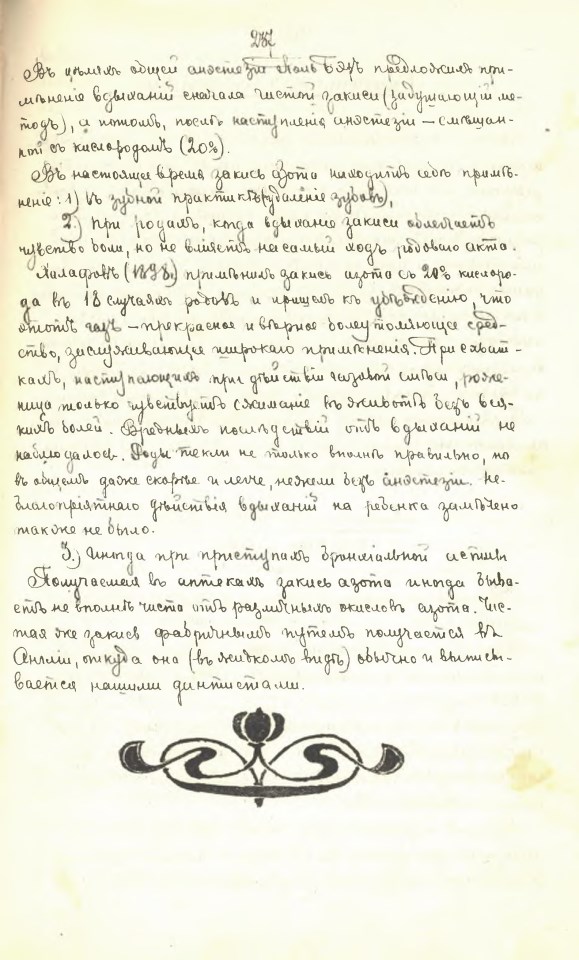 237
Въ цѣляхъ общей анэстезіи Поль Бэръ предложилъ при-
мѣненіе вдыханій сначала чистой закиси (задушающій ме-
тодъ), а потомъ, послѣ наступленія анэстезіи – смѣшан-
ной съ кислородомъ (20%).
Въ настоящее время закись азота находитъ себѣ примѣ-
неніе: 1) въ зубной практикѣ (удаленіе зубовъ),
2.) при родахъ, когда вдыханіе закиси облегчаетъ
чувство боли, но не вліяетъ на самый ходъ родового акта.
Халафовъ (1898г.) примѣнилъ закись азота съ 20% кислоро-
да въ 18 случаяхъ родовъ и пришелъ къ убѣжденію, что
этотъ газъ – прекрасное и вѣрное болеутоляющее сред-
ство, заслуживающее широкаго примѣненія. При схват-
кахъ, наступающихъ при дѣйствіи газовой смѣси, роже-
ница только чувствуетъ сжиманіе въ животѣ безъ вся-
кихъ болей. Вредныхъ послѣдствій отъ вдыханій не
наблюдалось. Роды текли не только вполнѣ правильно, но
въ общемъ даже скорѣе и легче, нежели безъ анэстезіи. Не-
благопріятнаго дѣйствія вдыханій на ребенка замѣчено
также не было.
3.) Иногда при приступахъ бронхіальной астмы
Получаемая въ аптекахъ закись азота иногда быва-
етъ не вполнѣ чиста отъ различныхъ окисловъ азота. Чис-
тая же закись фабричнымъ путемъ получается въ
Англіи, откуда она (въ жидкомъ видѣ) обычно и выписы-
вается нашими дантистами.